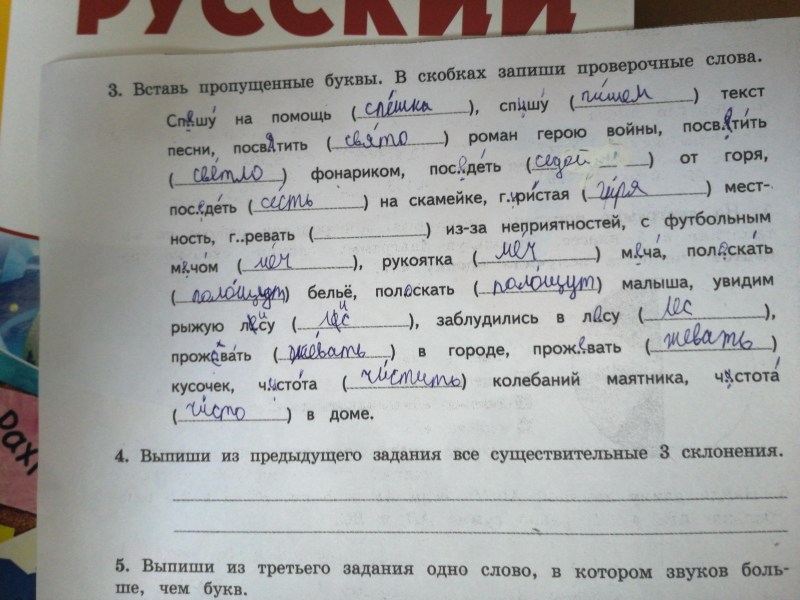 РУССКИЙ
3. Вставь пропущенные буквы. В скобках запиши проверочные слова.
Спешу́ на помощь (спе́шка), спишу́ (пи́шем) текст
песни, посвятить (свя́то) роман герою войны, посвети́ть
(све́тло) фонариком, поседе́ть (седой) от горя,
посидеть (сесть) на скамейке, г..ри́стая (го́ря) мест-
ность, г..ревать (      ) из-за неприятностей, с футбольным
мячо́м (мяч), рукоятка (меч) меча́, поласка́ть
(поло́щут) бельё, полоскать (поло́щут) малыша, увидим
рыжую лису (лис), заблудились в лесу (лес),
проживать (жевать) в городе, прожевать (жевать)
кусочек, чистота (чи́стить) колебаний маятника, чистота́
(чи́сто) в доме.
4. Выпиши из предыдущего задания все существительные 3 склонения.
5. Выпиши из третьего задания одно слово, в котором звуков боль-
ше, чем букв.